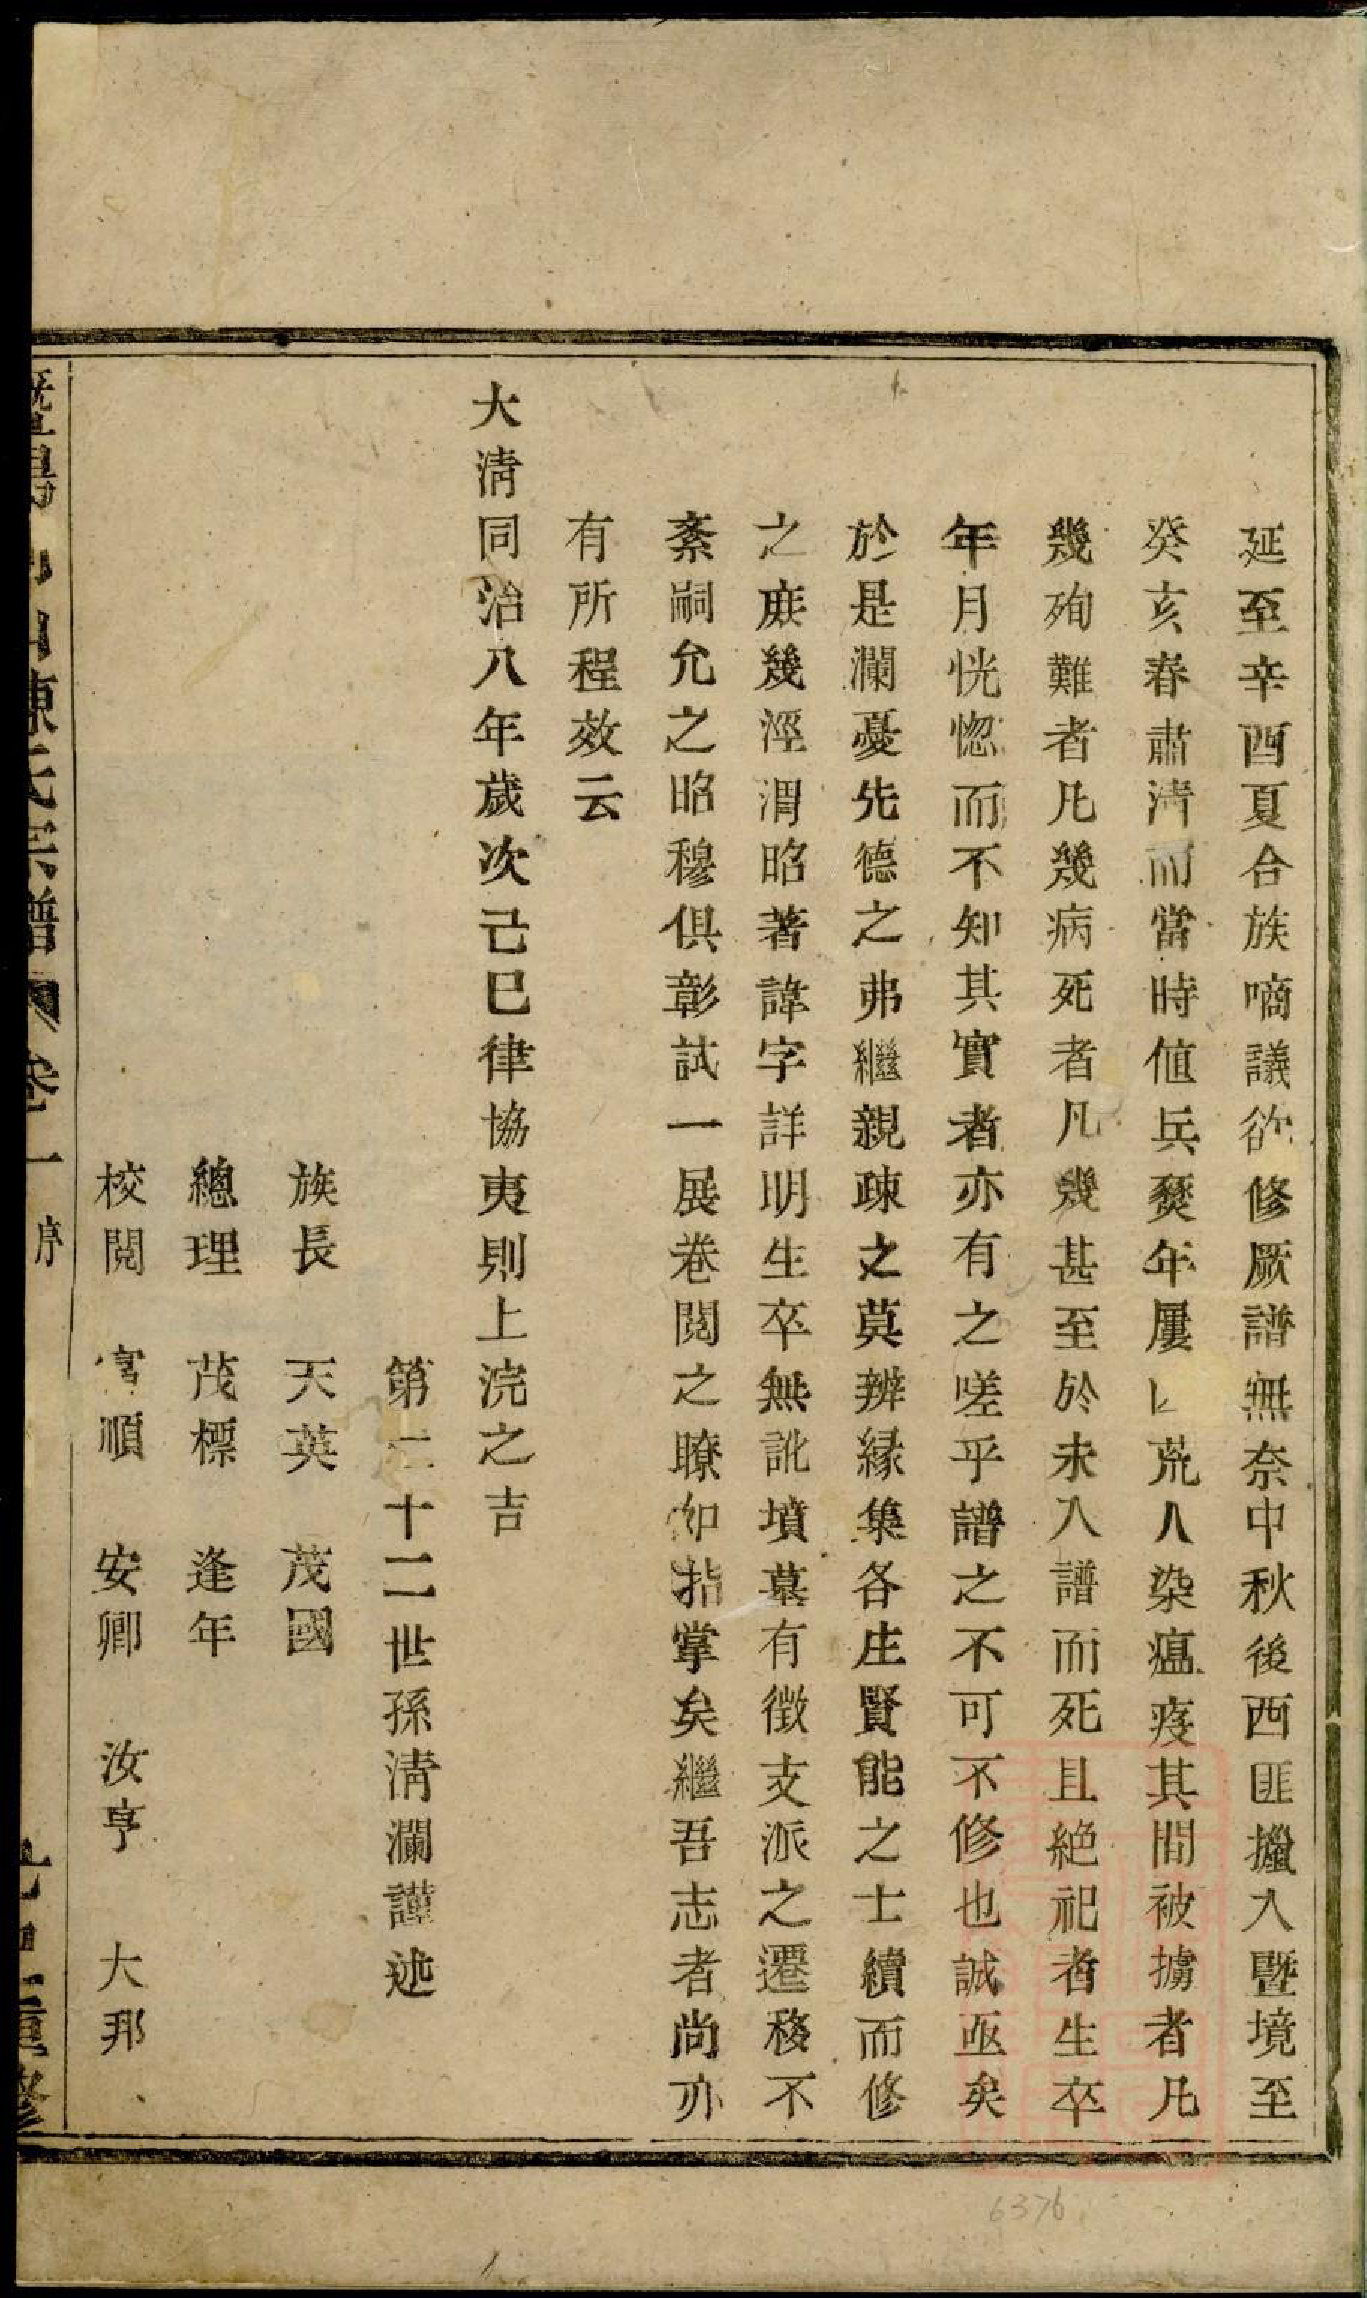 延至辛酉夏合族嘀議欲修厥譜無奈中秋後西匪擸入暨境至
癸亥春肅淸而當時値兵燹年屢荒人染瘟疫其間被擄者凡
幾殉難者凡幾病死者凡幾甚至於未入譜而死且絕祀者生卒
年月恍惚而不知其實者亦有之嗟乎譜之不可不修也誠亟矣
於是瀾憂先德之弗繼親疎之莫辨緣集各庄賢能之士續而修
之庶幾涇渭昭著諱字詳明生卒無訛墳墓有徵支派之遷移不
紊嗣允之昭穆俱彰試一展卷閱之瞭如指掌矣繼吾志者尚亦
有所程效云
大淸同治八年歲次己巳律協夷則上浣之吉
第二十二世孫淸瀾謹述
族長 天英 茂國
總理 茂標 逢年
校閱 富順 安卿 汝亨 大邦
暨陽 陳氏宗譜 卷一 序 重修
6376